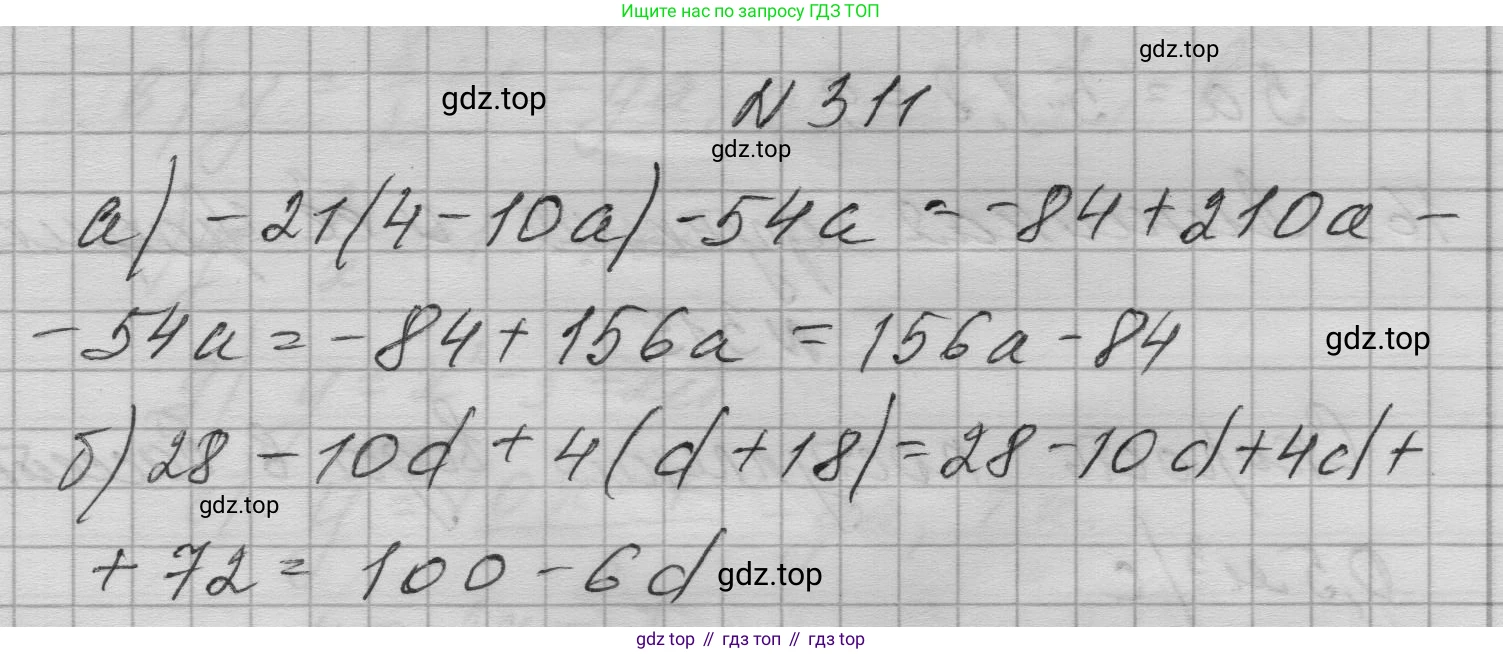 Ищите нас по запросу ГДЗ ТОП
gdz.top
gdz.top
N 311
gdz.top
а) -21(4-10a)-54a = -84+210a -
-54a = -84+156a = 156a-84
gdz.top
б) 28-10d+4(d+18)=28-10d+4d+
gdz.top
+72= 100-6d
gdz.top
gdz top // гдз топ // гдз top